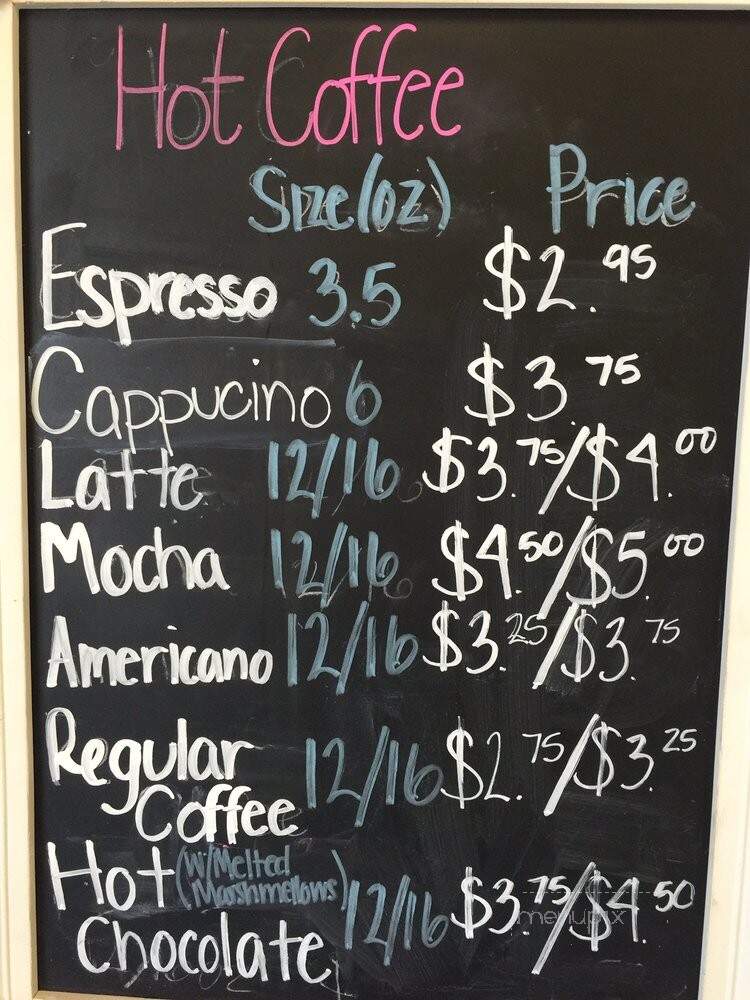 Hot Coffee
Size(oz) Price
Espresso 3.5 $2.95
Cappucino 6 $3.75
Latte 12/16 $3.75/$4.00
Mocha 12/16 $4.50/$5.00
Americano 12/16 $3.25/$3.75
Regular
Coffee 12/16 $2.75/$3.25
Hot (w/Melted
Marshmellows) 12/16 $3.75/$4.50
Chocolate
menupix